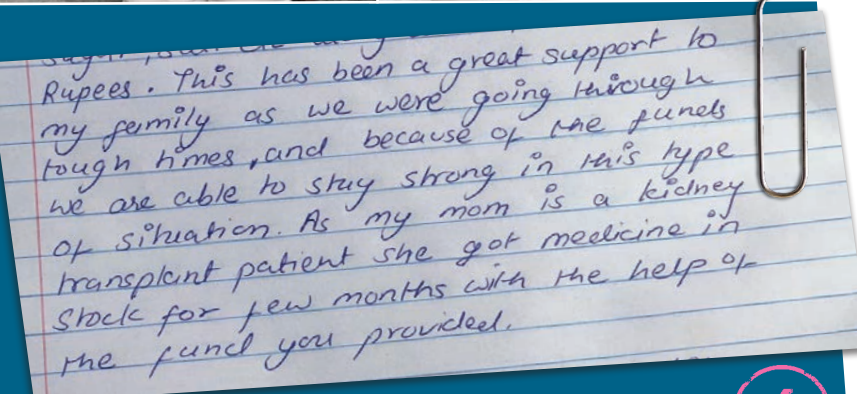 Rupees. This has been a great support to
my family as we were going through
tough times, and because of the funds
we are able to stay strong in this type
of situation. As my mom is a kidney
transplant patient she got medicine in
stock for few months with the help of
the fund you provided.